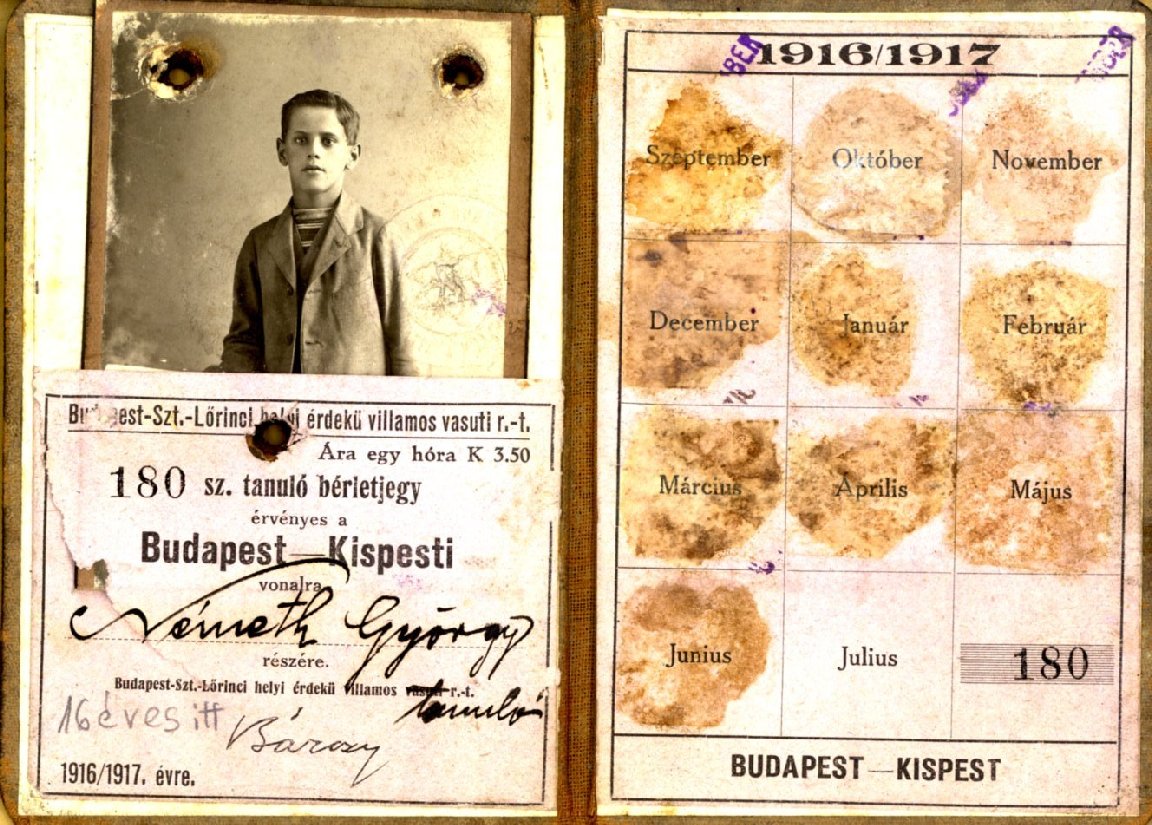 Budapest-Szt.-Lőrinci helyi érdekü villamos vasuti r.-t.
Ára egy hóra K 3.50
180 sz. tanuló bérletjegy
érvényes a
Budapest—Kispesti
vonalra
Németh György
részére.
Budapest-Szt.-Lőrinci helyi érdekü villamos vasuti r.-t.
tanuló
16 éves itt
1916/1917. évre.
1916/1917
Szeptember Október November
December Január Február
Március Április Május
Junius Julius 180
BUDAPEST—KISPEST